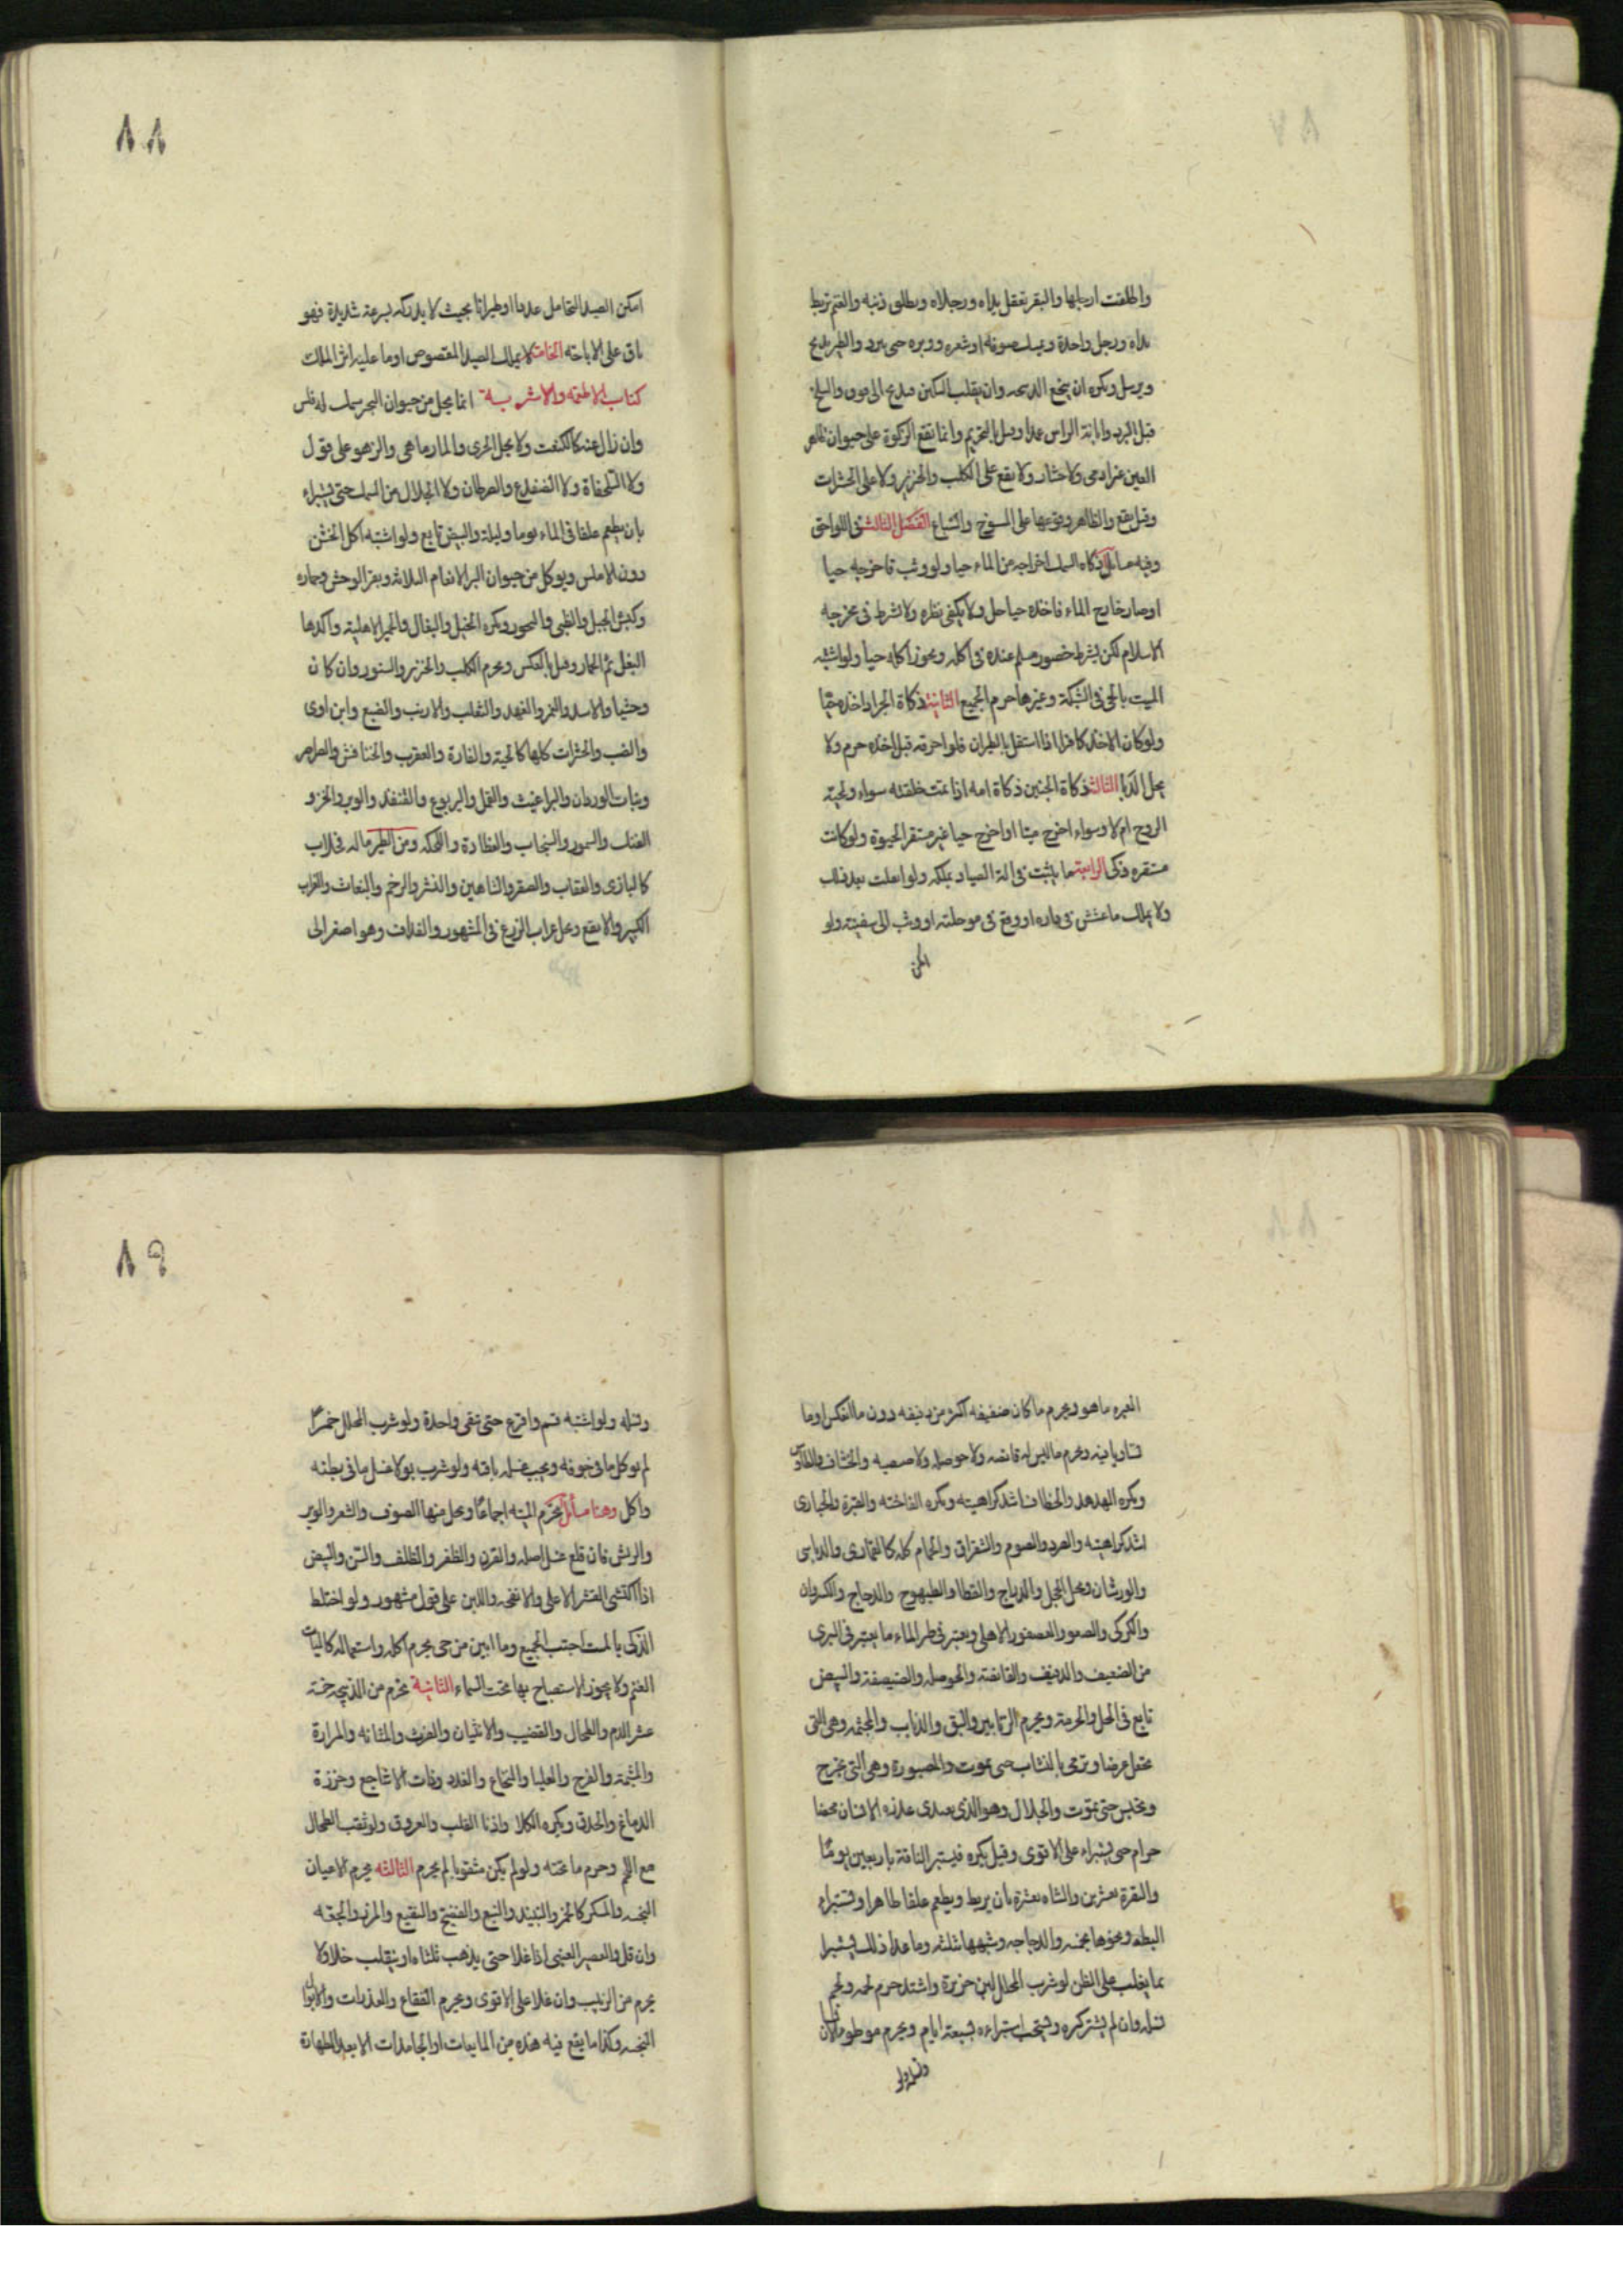 واطلقت ارجلها والبقر تعقل يداه ورجلاه ويطلق ذنبه والغنم تربط
يداه ورجل واحدة ويمسك صوفه او شعره ووبره حتى يبرد والطير يذبح
ويرسل ويكره ان ينخع الذبيحه وان يقلب السكين فيذبح الى فوق والسلخ
قبل البرد وابانة الراس عمدا وقيل بالتحريم وانما تقع الزكوة على حيوان طاهر
العين غير ادمى ولا حشار ولا يقع على الكلب والخنزير ولا على الحشرات
وقيل يقع والظاهر وقوعها على المسوخ والسباع الفصل الثالث فى اللواحق
وفيه مسائل ذكاه السمك اخراجه من الماء حيا ولو وثب فاخرجه حيا
او صار خارج الماء فاخذه حيا حل ولا يكفى نظره ولا يشرط فى مخرجه
الاسلام لكن يشرط حضور مسلم عنده فى اكله ويجوز اكله حيا ولو اشتبه
الميت بالحى فى الشبكة وغيرها حرم الجميع الثانية ذكاة الجراد اخذه حيا
ولو كان الاخذ كافرا اذا استقل بالطيران فلو احرقه قبل اخذه حرم ولا
يحل الدبا الثالث ذكاة الجنين ذكاة امه اذا تمت خلقته سواء ولجته
الروح ام لا وسواء اخرج ميتا او اخرج حيا غير مستقر الحيوة ولو كانت
مستقره ذكى الرابعة ما يثبت فى الة الصياد يملكه ولو انفلت بعد ذلك
ولا يملك ما عشش فى داره او وقع فى موحلته او وثب الى سفينته ولو
امكن
٨٨
امكن الصيد التحامل عدوا او طيرانا بحيث لا يدركه الا بسرعة شديدة فهو
باق على الاباحه الخامسة لا يملك الصيد المقصوص او ما عليه اثر الملك
كتاب الاطعمة والاشربة انما يحل من حيوان البحر سمك له فلس
وان زال عنه كالكنعت ولا يحل الجرى والمارماهى والزهو على قول
ولا السلحفاة ولا الضفدع والسرطان ولا الجلال من السمك حتى يستبراء
بان يطعم علفا فى الماء يوما وليلة والبيض تابع ولو اشتبه اكل الخشن
دون الاملس ويوكل من حيوان البر الانعام الثلاثه وبقر الوحش وحماره
وكبش الجبل والظبى واليحمور ويكره الخيل والبغال والحمير الاهلية واكدها
البغل ثم الحمار وقيل بالعكس ويحرم الكلب والخنزير والسنور وان كان
وحشيا والاسد والنمر والفهد والثعلب والارنب والضبع وابن اوى
والضب والحشرات كلها كالحية والفارة والعقرب والخنافس والصراصر
وبنات الوردان والبراغيث والقمل واليربوع والقنفذ والوبر والخز و
الفنك والسمور والسنجاب والعظاءة واللحكه ومن الطير ماله مخلاب
كالبازى والعقاب والصقر والشاهين والنسر والرخم والبغاث والغراب
الكبير والابقع وحل غراب الزرع فى المشهور والغداف وهو اصغر الى
الغبره ما هو ويحرم ما كان صفيفه اكثر من دفيفه دون ما انعكس او ما
تساويا فيه ويحرم ما ليس له قانصه ولا حوصله ولا صيصيه والخشاف والطاوس
ويكره الهدهد والخطاف اشد كراهيته ويكره الفاخته والقبرة والحبارى
اشد كراهيته والصرد والصوم والشقراق والحمام كله كالقمارى والدباسى
والورشان ويحل الحجل والدراج والقطا والطيهوج والدجاج والكروان
والكركى والصعو والعصفور الاهلى ويعتبر فى طير الماء ما يعتبر فى البرى
من الصفيف والدفيف والقانصة والحوصله والصيصية والبيض
تابع فى الحل والحرمة ويحرم الزنابير والبق والذباب والمجثمه وهى التى
تجعل غرضا وترمى بالنشاب حتى يموت والمصبورة وهى التى تجرح
وتحبس حتى تموت والجلال وهو الذى يغتذى عذره الانسان محضا
حرام حتى يستبراء على الاقوى وقيل يكره فيستبر الناقة باربعين يوما
والبقرة بعشرين والشاه بعشرة بان يربط ويطعم علفا طاهرا وتستبراء
البطه ونحوها بخمسه والدجاجه وشبهها بثلثه وما عدا ذلك يستبرا
بما يغلب على الظن لو شرب المحلل لبن خنزيرة واشتد حرم لحمه ولحم
نسله وان لم يشتد كره ويستحب استبراءه بسبعة ايام ويحرم موطوء الانسان
ونسله ولو
٨٩
ونسله ولو اشتبه قسم واقرع حتى تبقى واحدة ولو شرب المحلل خمرا
لم يوكل ما فى جوفه ويجب غسل باقيه ولو شرب بولا غسل ما فى بطنه
واكل وهنا مسائل تحرم الميته اجماعا ويحل منها الصوف والشعر والوبر
والريش فان قلع غسل اصله والقرن والظفر والظلف والسن والبيض
اذا اكتسى القشر الاعلى والانفحه واللبن على قول مشهور ولو اختلط
الذكى بالميت اجتنب الجميع وما ابين من حى يحرم اكله واستعماله كاليات
الغنم ولا يجوز الاستصباح بها تحت السماء الثانية تحرم من الذبيحه خمسة
عشر الدم والطحال والقضيب والانثيان والفرث والمثانه والمرارة
والمشيمة والفرج والعلبا والنخاع والغدد وذات الاشاجع وخرزة
الدماغ والحدق ويكره الكلا واذنا القلب والعروق ولو ثقب الطحال
مع اللحم وحرم ما تحته ولو لم يكن مثقوبا لم يحرم الثالثه يحرم الاعيان
النجسه والمسكر كالخمر والنبيذ والبتع والفضيخ والنقيع والمزر والجعه
وان قل والعصير العنبى اذا غلا حتى يذهب ثلثاه او ينقلب خلا ولا
يحرم من الزبيب وان غلا على الاقوى ويحرم الفقاع والعذرات والابوال
النجسه وكذا ما يقع فيه هذه من المايعات او الجامدات الا بعد الطهارة